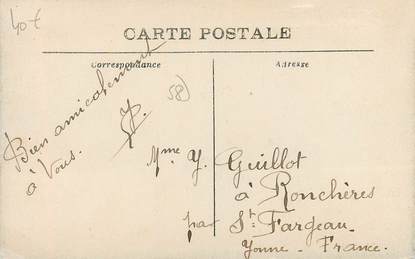 40 €
CARTE POSTALE
Correspondance
Adresse
Bien amicalement
à Vous.
58)
Mme Y. Guillot
à Ronchères
par St. Fargeau
Yonne - France.